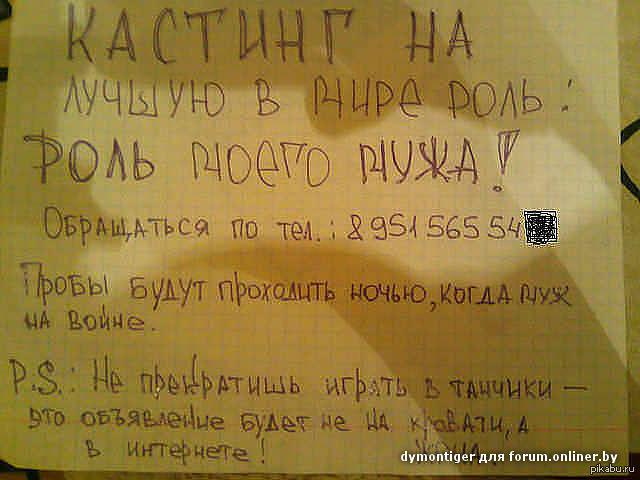 КАСТИНГ НА
ЛУЧШУЮ В МИРЕ РОЛЬ :
РОЛЬ МОЕГО МУЖА !
Обращаться по тел. : 8 951 565 54
Пробы будут проходить ночью, когда муж
на войне.
P.S.: Не прекратишь играть в танчики —
это объявление будет не на кровати, а
в интернете !
dymontiger для forum.onliner.by
pikabu.ru